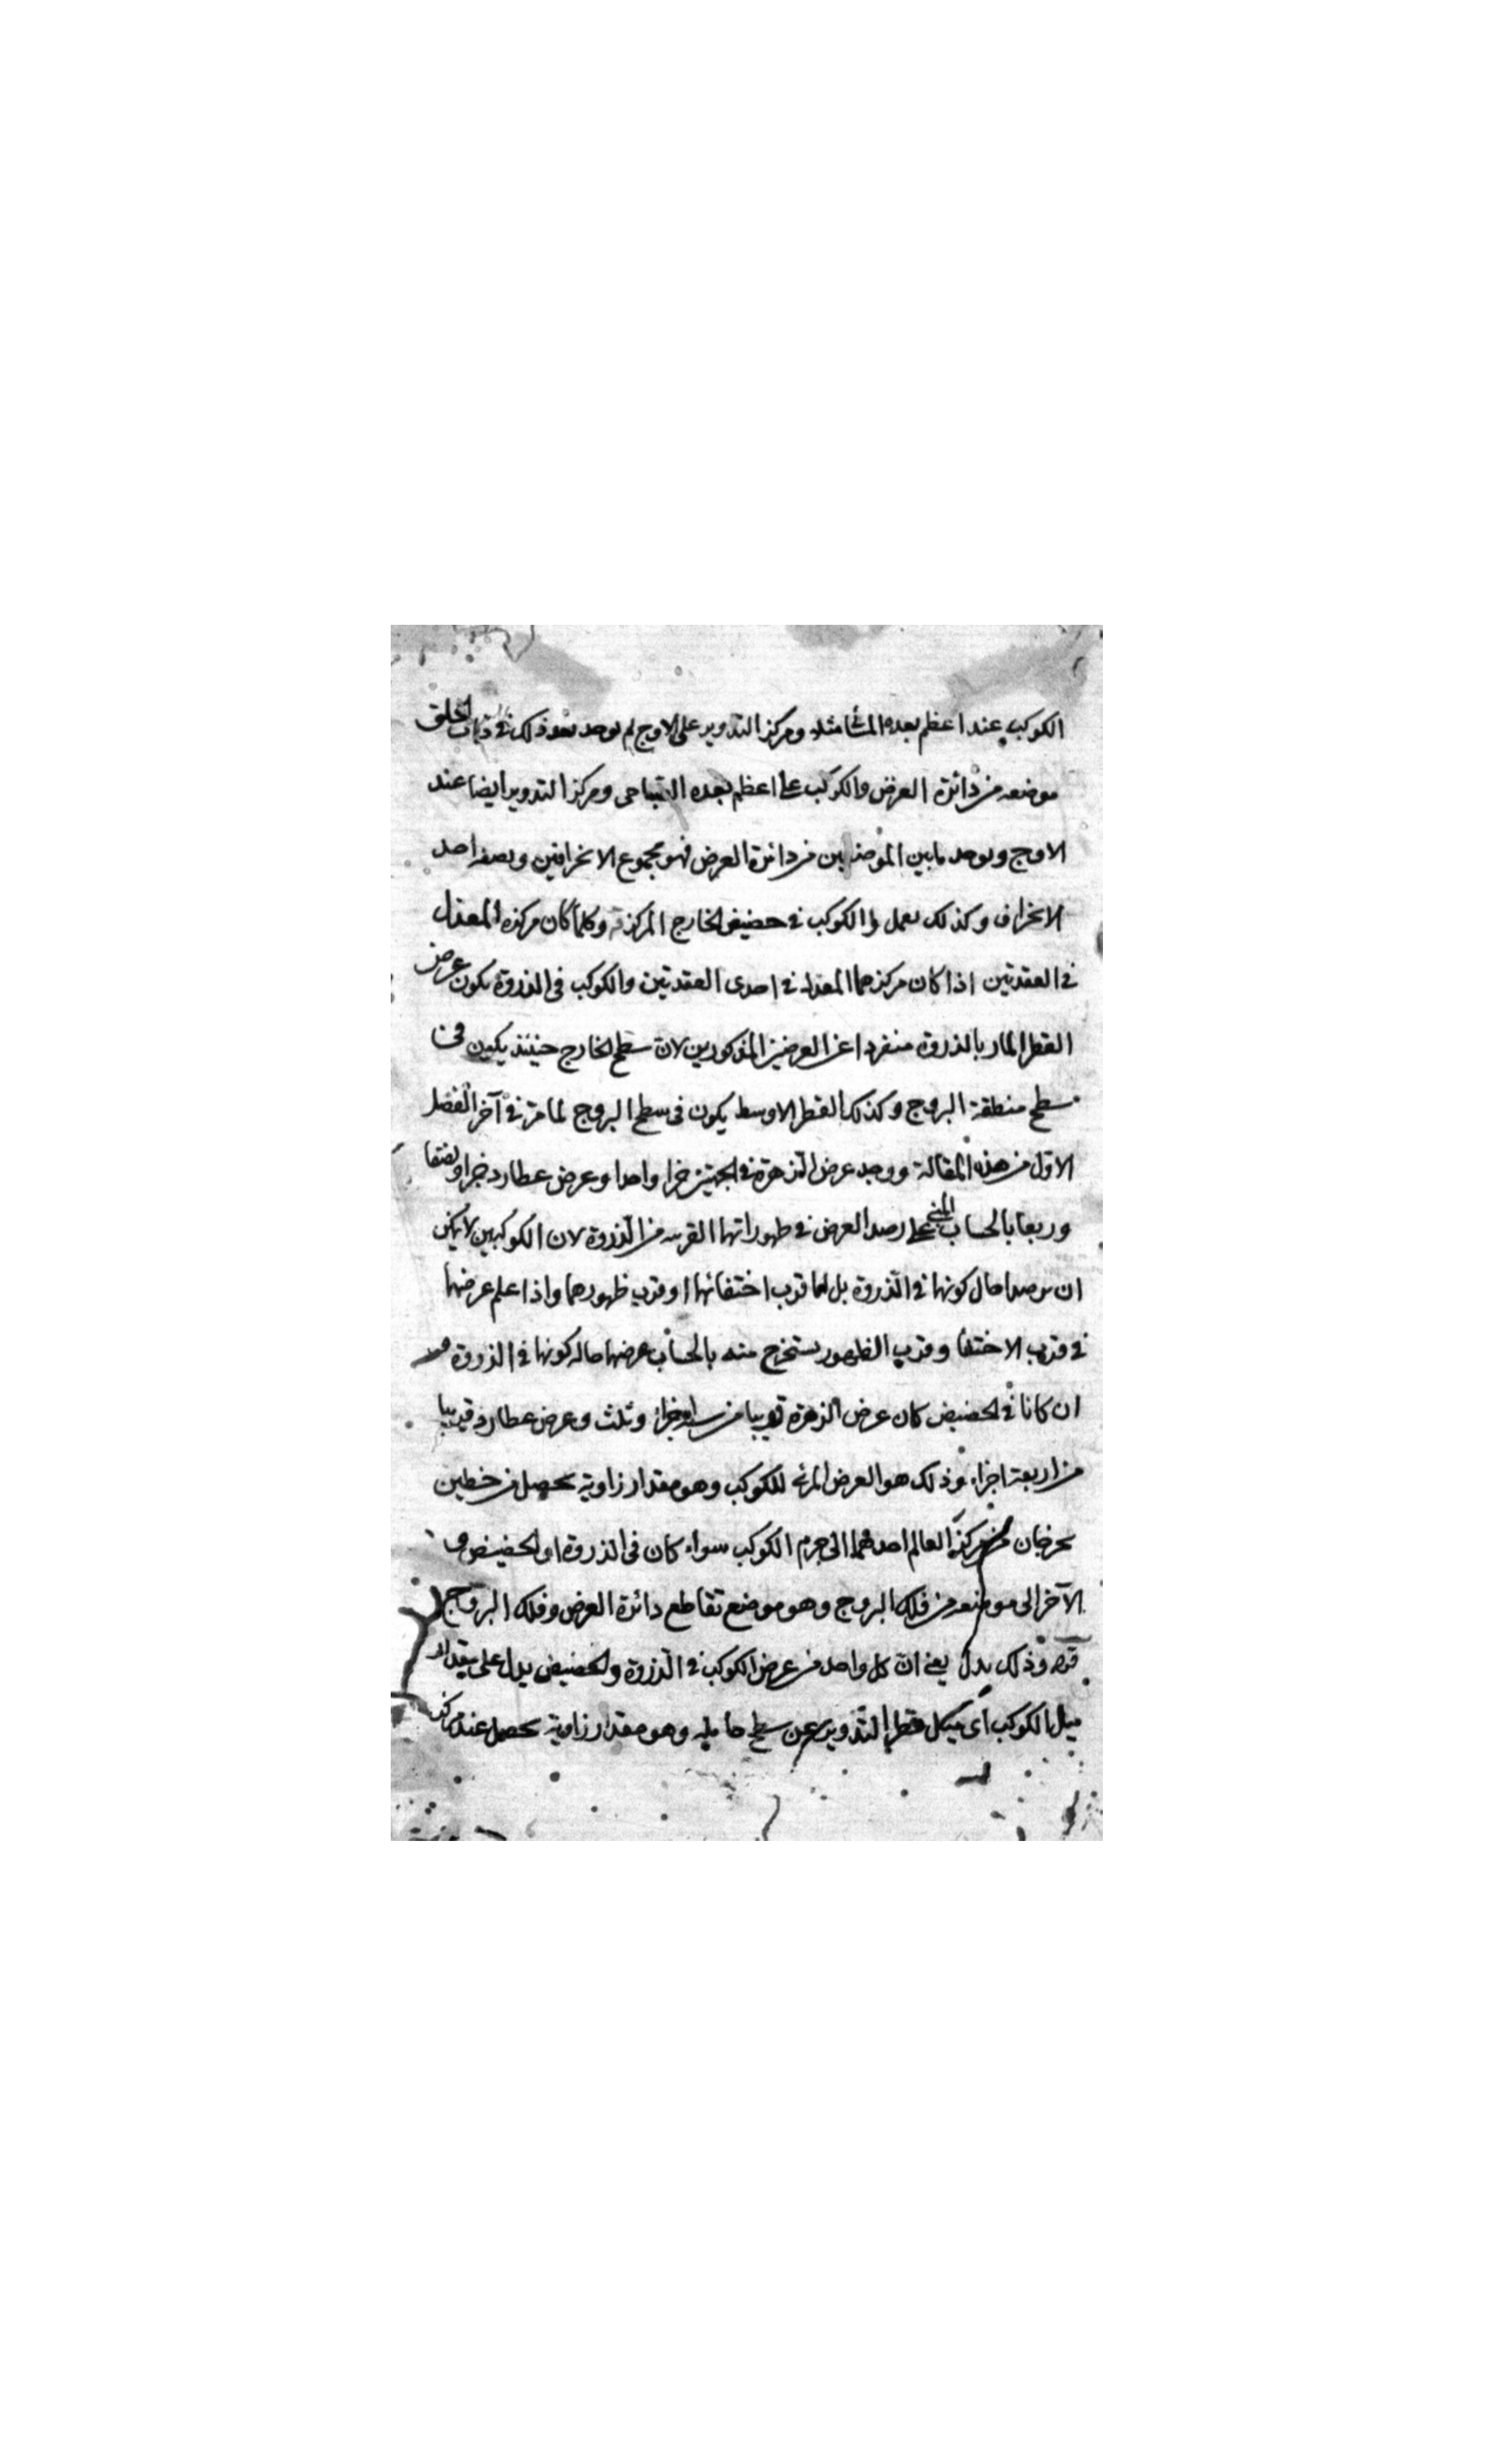 الكوكب عند اعظم بعده المسائى مثلا ومركز التدوير على الاوج ثم يوجد بعد ذلك فى ذات الحلق
موضعه من دائرة العرض والكوكب على اعظم بعده الصباحى ومركز التدوير ايضا عند
الاوج ويوجد ما بين الموضعين من دائرة العرض فهو مجموع الانحرافين ونصفه احد
الانحراف وكذلك يعمل والكوكب فى حضيض الخارج المركز وكلما كان مركزه المعدل
فى العقدتين اذا كان مركزهما المعدل فى احدى العقدتين والكوكب فى الذروة يكون عرض
القطر المار بالذروة منفردا عن العرضين المذكورين لان سطح الخارج حينئذ يكون فى
سطح منطقة البروج وكذلك القطر الاوسط يكون فى سطح البروج لما مر فى آخر الفصل
الاول من هذه المقالة ووجد عرض الزهرة فى الجهتين جزا واحدا وعرض عطارد جزا ونصفا
وربعا بالحساب المبنى على رصد العرض فى ظهوراتها القريبة من الذروة لان الكوكبين لا يمكن
ان يرصدا حال كونهما فى الذروة بل اما قرب اختفائهما او قرب ظهورهما واذا علم عرضهما
فى قرب الاختفا وقرب الظهور يستخرج منه بالحساب عرضهما حالة كونهما فى الذروة
ان كانا فى الحضيض كان عرض الزهرة قريبا من ستة اجزاء وثلث وعرض عطارد قريبا
من اربعة اجزاء وذلك هو العرض المرئى للكوكب وهو مقدار زاوية تحصل من خطين
يخرجان من مركز العالم احدهما الى جرم الكوكب سواء كان فى الذروة او الحضيض و
الآخر الى موضعه من فلك البروج وهو موضع تقاطع دائرة العرض وفلك البروج
قوله وذلك يدل يعنى ان كل واحد من عرض الكوكب فى الذروة والحضيض يدل على مقدار
ميل الكوكب اى ميل قطر التدوير عن سطح حامله وهو مقدار زاوية تحصل عند مركز